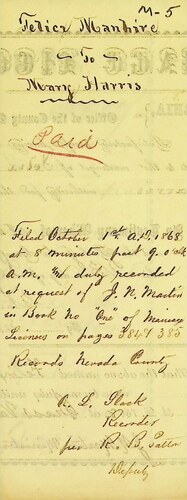 M-5
Felice Manhire
To
Mary Harris
Paid
Filed October 1st A.D. 1868
at 8 minutes past 9. o'clk
A.M. & duly recorded
at request of J. N. Martin
in Book No "One" of Marriage
Licenses on pages 384 & 385
Records Nevada County
Recorder
per R. B.
Deputy